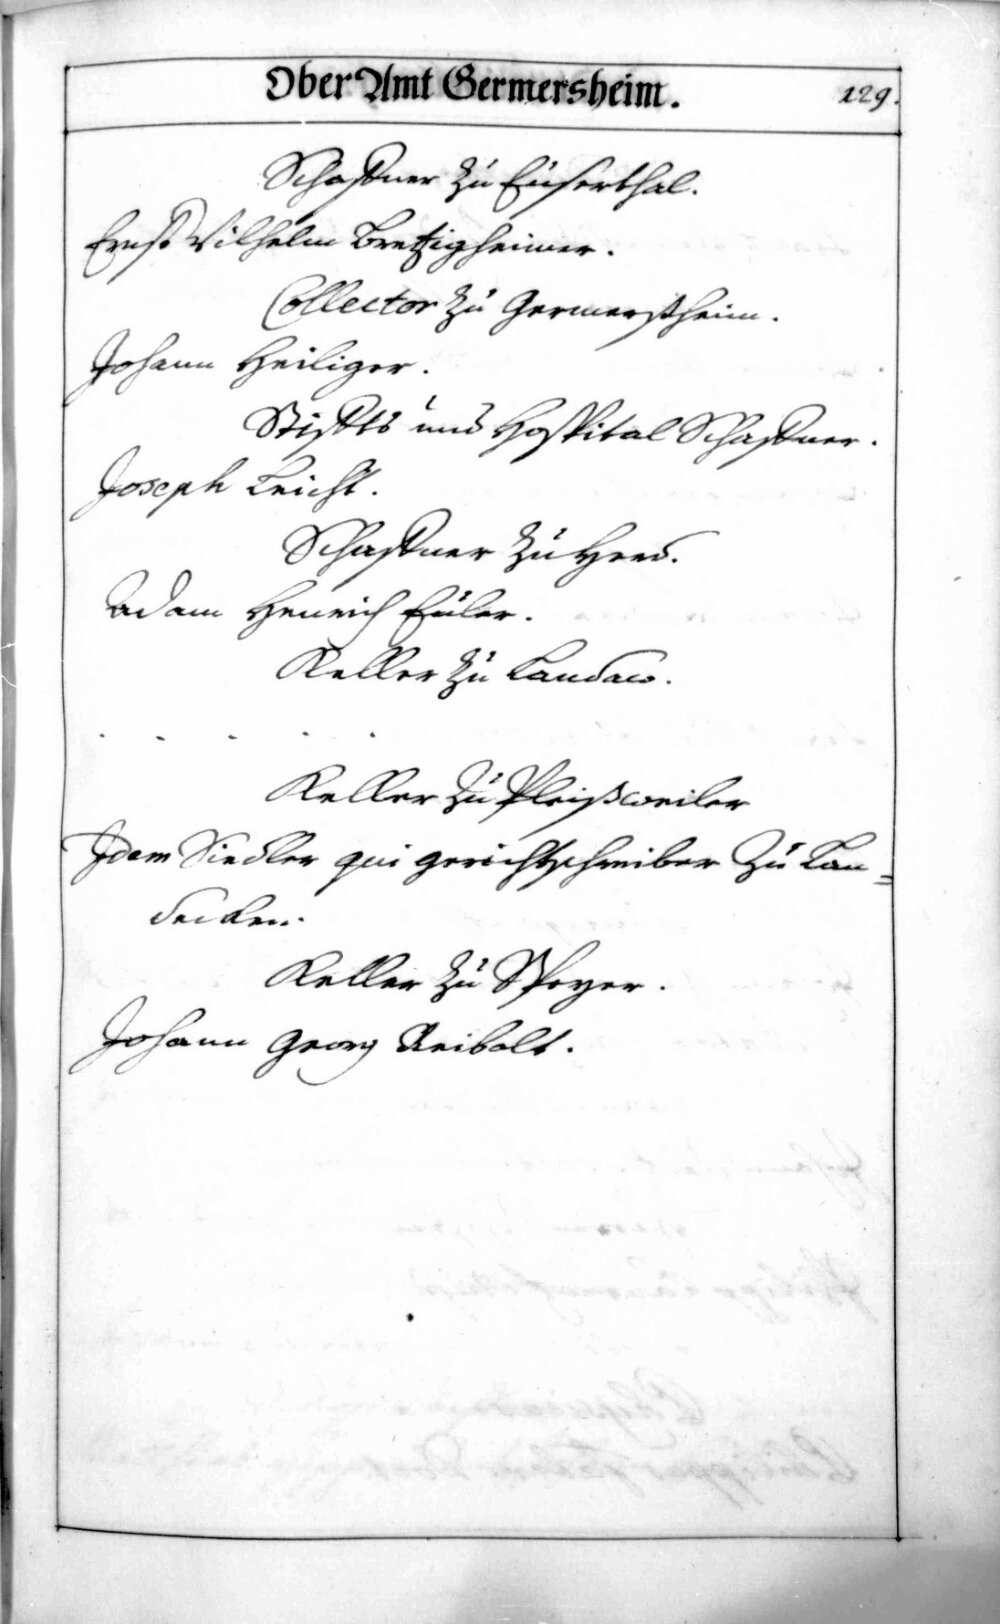 Ober Amt Germersheim.
129.
Schaffner zu Eüserthal.
Ernst Wilhelm Bretzigheimer.
Collector zu Germerßheim.
Johann Heiliger.
Stiffts und Hospital Schaffner.
Joseph Leicht.
Schaffner zu Hörd.
Adam Henrich Eüler.
Keller zu Landaw.
. . . . .
Keller zu Pleißweiler
Idem Siedler qui gerichtschreiber zu Lan=
decken.
Keller zu Speyer.
Johann Georg Reibolt.